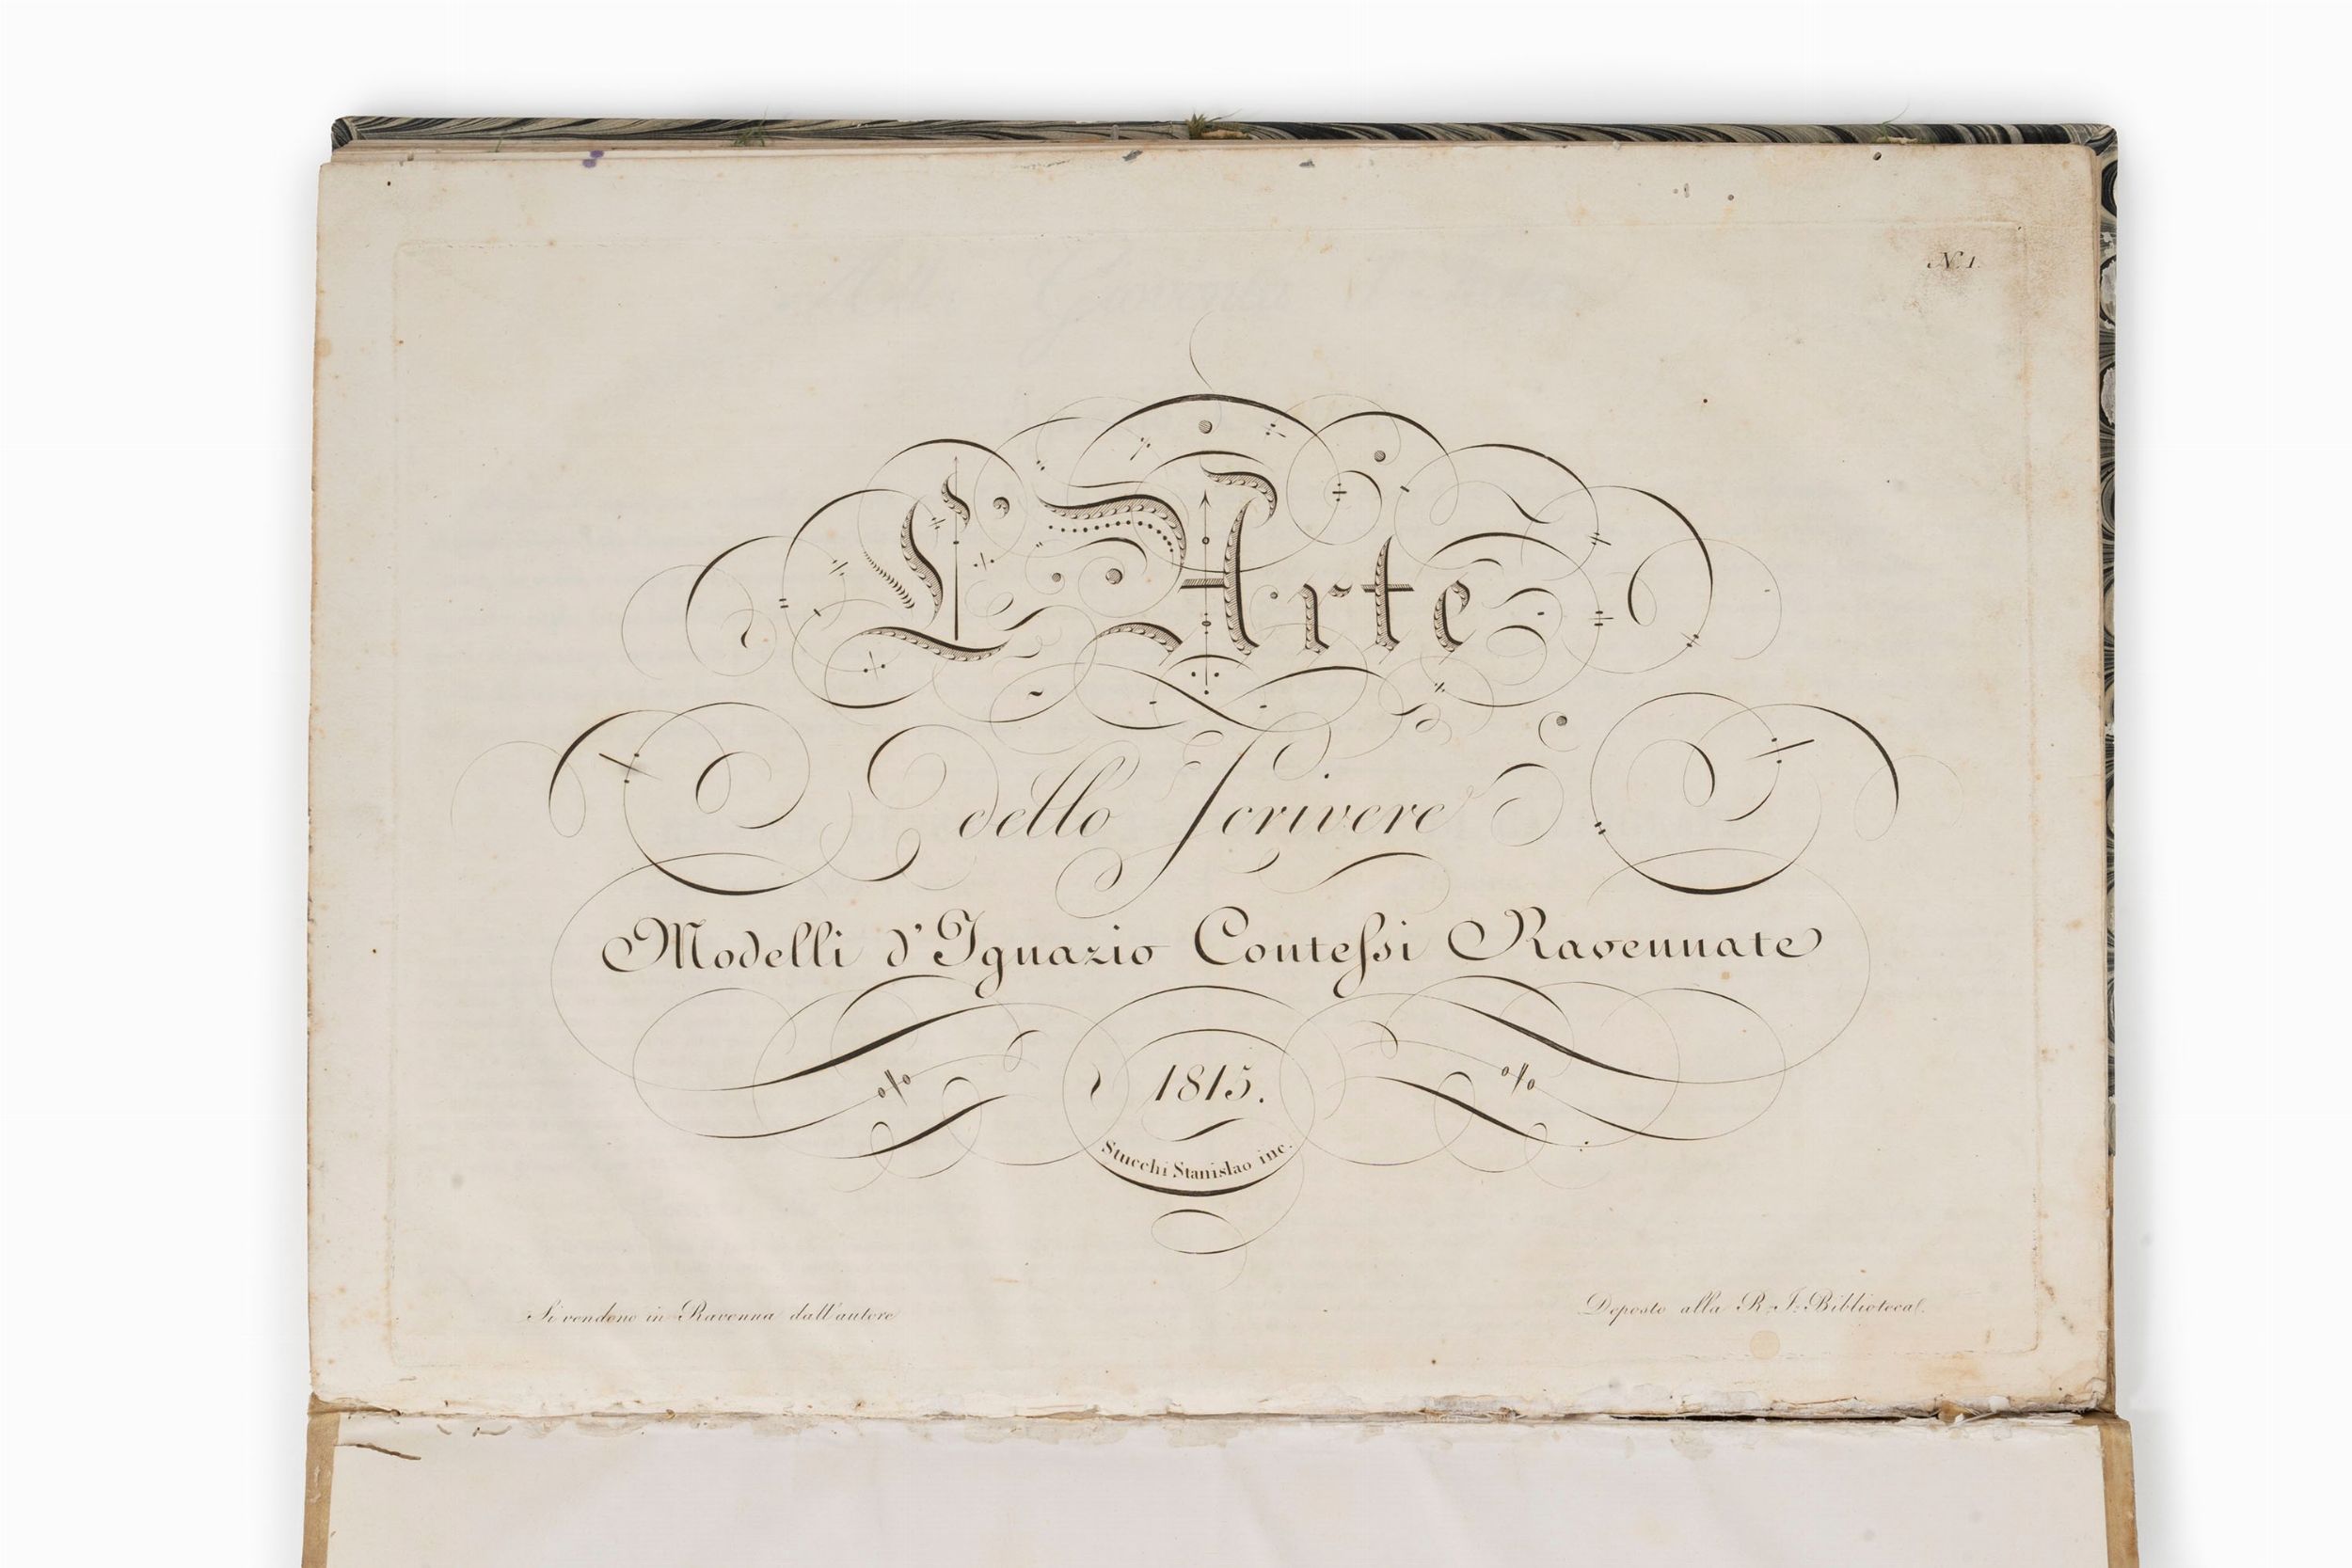 N. 1.
L'Arte
dello Scrivere
Modelli d'Ignazio Conteſsi Ravennate
1815.
Stucchi Stanislao inc.
Si vendono in Ravenna dall'autore
Deposto alla R. I. Biblioteca.